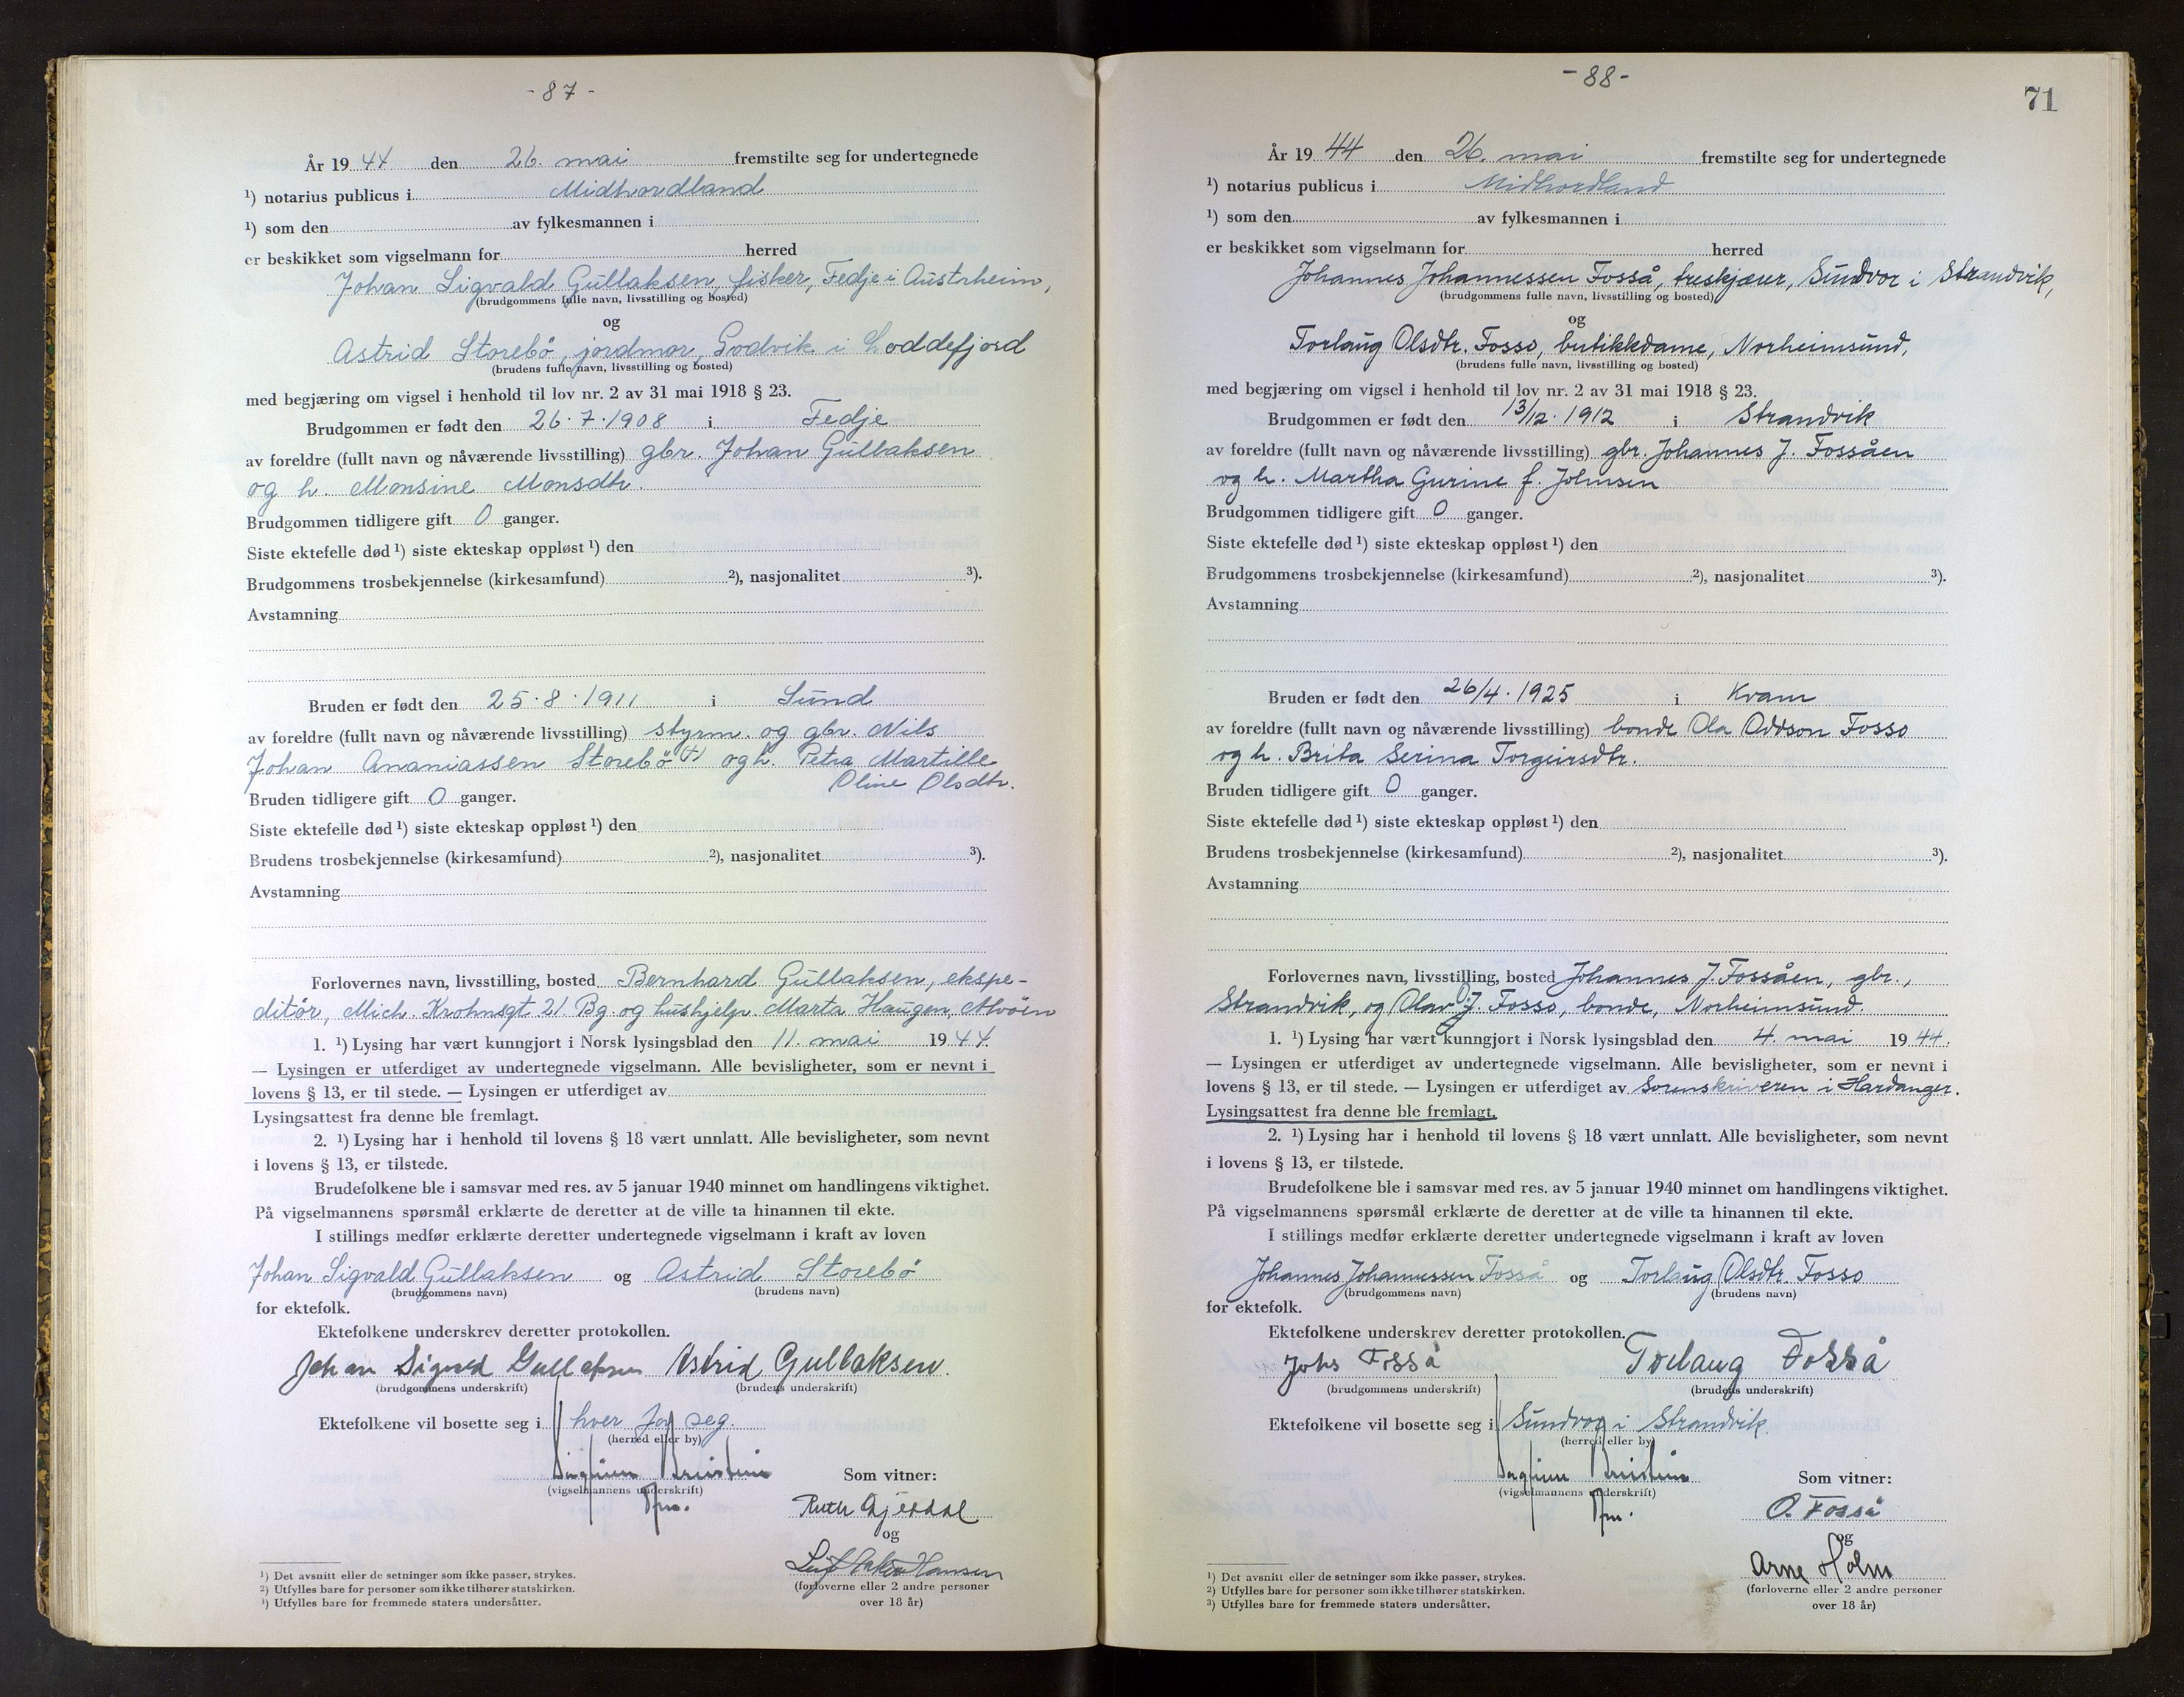 - 87 -
År 1944 den 26. mai fremstilte seg for undertegnede
¹) notarius publicus i Midhordland
¹) som den av fylkesmannen i
er beskikket som vigselmann for herred
Johan Sigvald Gullaksen, fisker, Fedje i Austrheim,
(brudgommens fulle navn, livsstilling og bosted)
og
Astrid Storebö, jordmor, Godvik i Loddefjord
(brudens fulle navn, livsstilling og bosted)
med begjæring om vigsel i henhold til lov nr. 2 av 31 mai 1918 § 23.
Brudgommen er født den 26.7.1908 i Fedje
av foreldre (fullt navn og nåværende livsstilling) gbr. Johan Gullaksen
og h. Monsine Monsdtr.
Brudgommen tidligere gift 0 ganger.
Siste ektefelle død ¹) siste ekteskap oppløst ¹) den
Brudgommens trosbekjennelse (kirkesamfund) ²), nasjonalitet ³).
Avstamning
Bruden er født den 25.8.1911 i Sund
av foreldre (fullt navn og nåværende livsstilling) styrm. og gbr. Nils
Johan Ananiassen Storebö (+) og h. Petra Martille
Oline Olsdtr.
Bruden tidligere gift 0 ganger.
Siste ektefelle død ¹) siste ekteskap oppløst ¹) den
Brudens trosbekjennelse (kirkesamfund) ²), nasjonalitet ³).
Avstamning
Forlovernes navn, livsstilling, bosted Bernhard Gullaksen, ekspe-
ditör, Mich. Krohnsgt 21 Bg. og hushjelp Marta Haugen, Alvöen
1. ¹) Lysing har vært kunngjort i Norsk lysingsblad den 11. mai 1944.
— Lysingen er utferdiget av undertegnede vigselmann. Alle bevisligheter, som er nevnt i
lovens § 13, er til stede. — Lysingen er utferdiget av
Lysingsattest fra denne ble fremlagt.
2. ¹) Lysing har i henhold til lovens § 18 vært unnlatt. Alle bevisligheter, som nevnt
i lovens § 13, er tilstede.
Brudefolkene ble i samsvar med res. av 5 januar 1940 minnet om handlingens viktighet.
På vigselmannens spørsmål erklærte de deretter at de ville ta hinannen til ekte.
I stillings medfør erklærte deretter undertegnede vigselmann i kraft av loven
Johan Sigvald Gullaksen og Astrid Storebö
(brudgommens navn) (brudens navn)
for ektefolk.
Ektefolkene underskrev deretter protokollen.
Johan Sigvald Gullaksen Astrid Gullaksen.
(brudgommens underskrift) (brudens underskrift)
Ektefolkene vil bosette seg i hver for seg.
(herred eller by)
Som vitner:
(vigselmannens underskrift)
Ruth Gjerdal
og
Leif Hansen
(forloverne eller 2 andre personer
over 18 år)
¹) Det avsnitt eller de setninger som ikke passer, strykes.
²) Utfylles bare for personer som ikke tilhører statskirken.
³) Utfylles bare for fremmede staters undersåtter.
- 88 -
71
År 1944 den 26. mai fremstilte seg for undertegnede
¹) notarius publicus i Midhordland
¹) som den av fylkesmannen i
er beskikket som vigselmann for herred
Johannes Johannessen Fosså, treskjærer, Sundvor i Strandvik,
(brudgommens fulle navn, livsstilling og bosted)
og
Torlaug Olsdtr. Fosso, butikkdame, Norheimsund,
(brudens fulle navn, livsstilling og bosted)
med begjæring om vigsel i henhold til lov nr. 2 av 31 mai 1918 § 23.
Brudgommen er født den 13/12.1912 i Strandvik
av foreldre (fullt navn og nåværende livsstilling) gbr. Johannes J. Fossåen
og h. Martha Gurine f. Johnsen
Brudgommen tidligere gift 0 ganger.
Siste ektefelle død ¹) siste ekteskap oppløst ¹) den
Brudgommens trosbekjennelse (kirkesamfund) ²), nasjonalitet ³).
Avstamning
Bruden er født den 26/4.1925 i Kvam
av foreldre (fullt navn og nåværende livsstilling) bonde Ola Oddson Fosso
og h. Brita Serina Torgeirsdtr.
Bruden tidligere gift 0 ganger.
Siste ektefelle død ¹) siste ekteskap oppløst ¹) den
Brudens trosbekjennelse (kirkesamfund) ²), nasjonalitet ³).
Avstamning
Forlovernes navn, livsstilling, bosted Johannes J. Fossåen, gbr.,
Strandvik, og Olav Fosso, bonde, Norheimsund.
1. ¹) Lysing har vært kunngjort i Norsk lysingsblad den 4. mai 1944.
— Lysingen er utferdiget av undertegnede vigselmann. Alle bevisligheter, som er nevnt i
lovens § 13, er til stede. — Lysingen er utferdiget av Sorenskriveren i Hardanger.
Lysingsattest fra denne ble fremlagt.
2. ¹) Lysing har i henhold til lovens § 18 vært unnlatt. Alle bevisligheter, som nevnt
i lovens § 13, er tilstede.
Brudefolkene ble i samsvar med res. av 5 januar 1940 minnet om handlingens viktighet.
På vigselmannens spørsmål erklærte de deretter at de ville ta hinannen til ekte.
I stillings medfør erklærte deretter undertegnede vigselmann i kraft av loven
Johannes Johannessen Fosså og Torlaug Olsdtr. Fosso
(brudgommens navn) (brudens navn)
for ektefolk.
Ektefolkene underskrev deretter protokollen.
Johs Fosså Torlaug Fosså
(brudgommens underskrift) (brudens underskrift)
Ektefolkene vil bosette seg i Sundvor i Strandvik.
(herred eller by)
Som vitner:
(vigselmannens underskrift)
O. Fosså
og
Arne Holm
(forloverne eller 2 andre personer
over 18 år)
¹) Det avsnitt eller de setninger som ikke passer, strykes.
²) Utfylles bare for personer som ikke tilhører statskirken.
³) Utfylles bare for fremmede staters undersåtter.